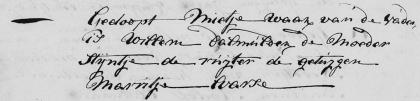 Gedoopt Mietje waar van de Vader
is Willem Dalmulden de Moeder
Styntje de ruijter de getuijgen
Marritje Vasse